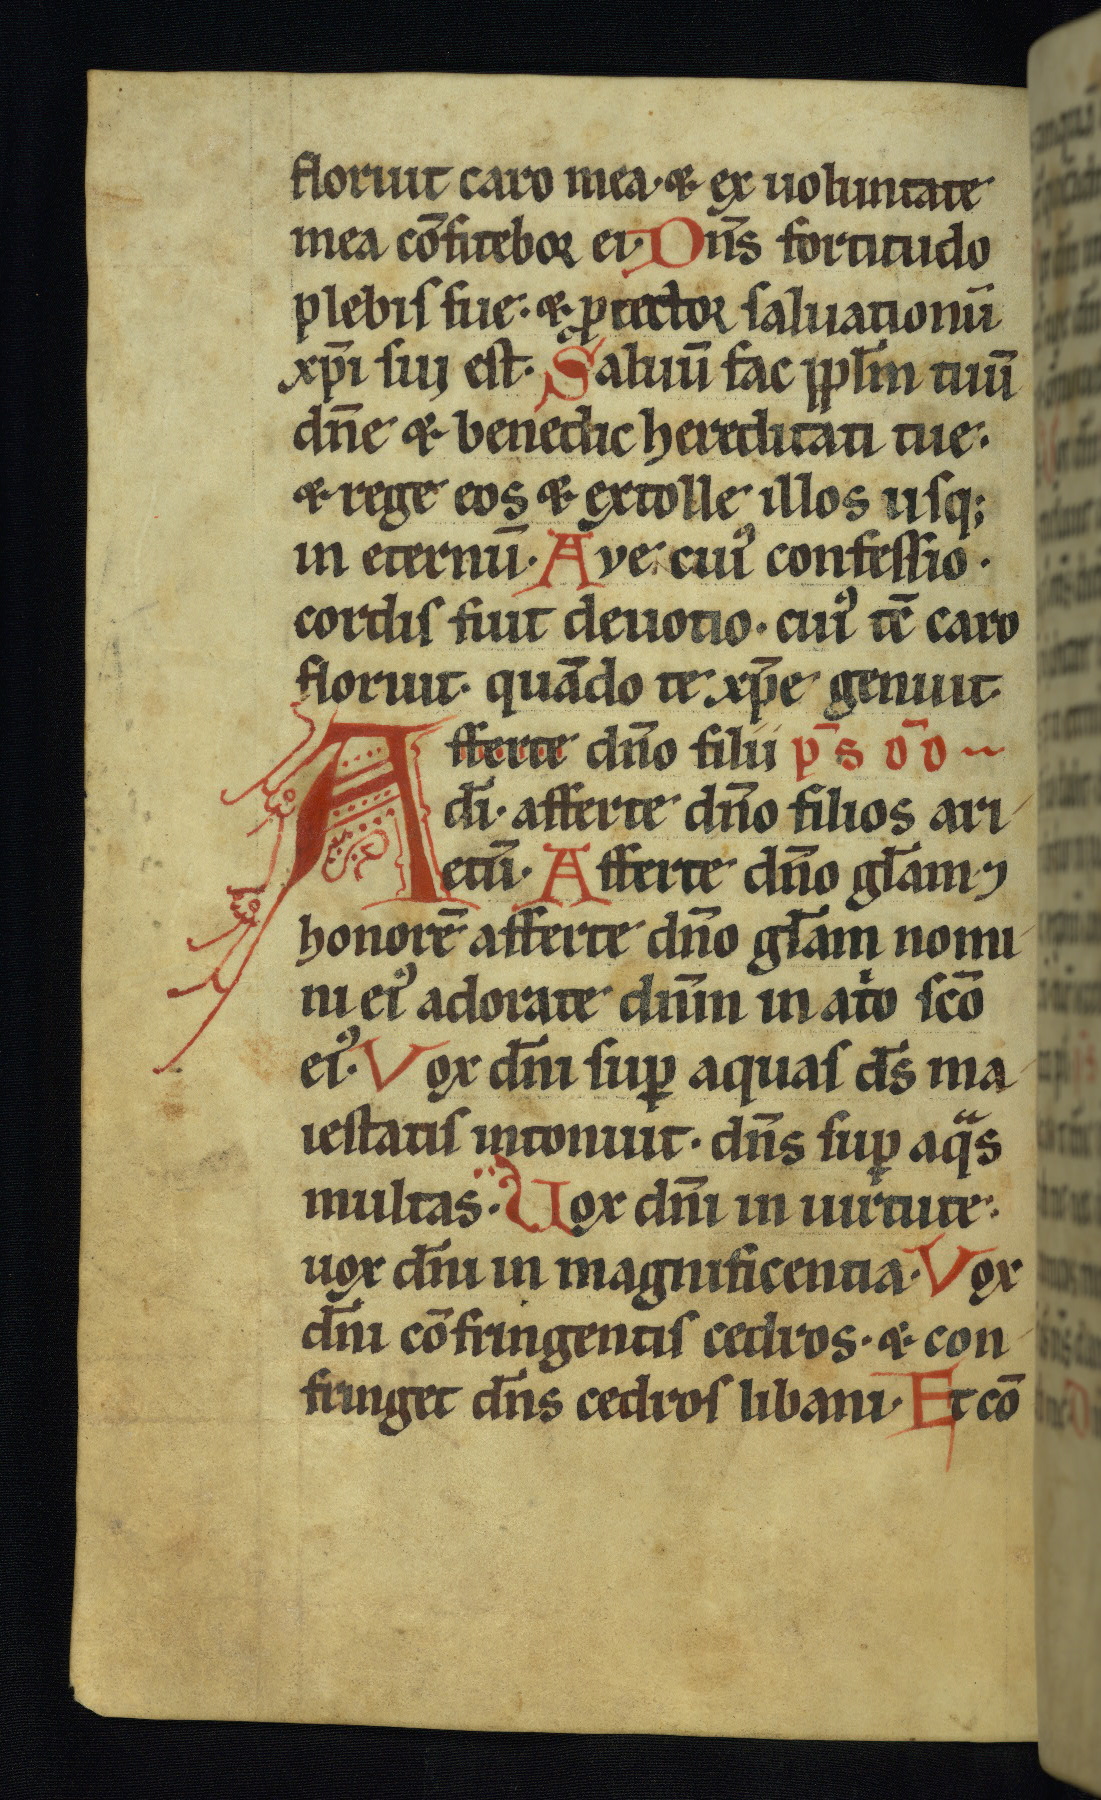 floruit caro mea· ⁊ ex uoluntate
mea cōfitebor ei· Dn̄s fortitudo
plebis sue· ⁊ ꝓtector saluationū
xp̄i sui est· Saluū fac ppl̄m tuū
dn̄e ⁊ benedic hereditati tue·
⁊ rege eos ⁊ extolle illos usq;
in eternū· Aue cui᾽ confessio·
cordis fuit deuotio· cui᾽ tē caro
floruit· quādo te xp̄e genuit
Afferte dn̄o filii ps̄ dd̄
dī· afferte dn̄o filios ari
etū· Afferte dn̄o gl̄am ⁊
honorē afferte dn̄o gl̄am nomi
ni ei᾽ adorate dn̄m in atⁱo scō
ei᾽· Vox dn̄i suꝑ aquas ds̄ ma
iestatis intonuit· dn̄s suꝑ aq̄s
multas· Uox dn̄i in uirtute·
uox dn̄i in magnificentia· Vox
dn̄i cōfringentis cedros· ⁊ con
fringet dn̄s cedros libani· Et cō